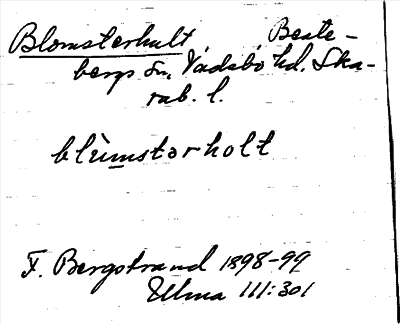 Blomsterhult Beate-
bergs sn, Vadsbo hd. Ska-
rab. l.
blùmstərholt
F. Bergstrand 1898-99
Ulma 111:301